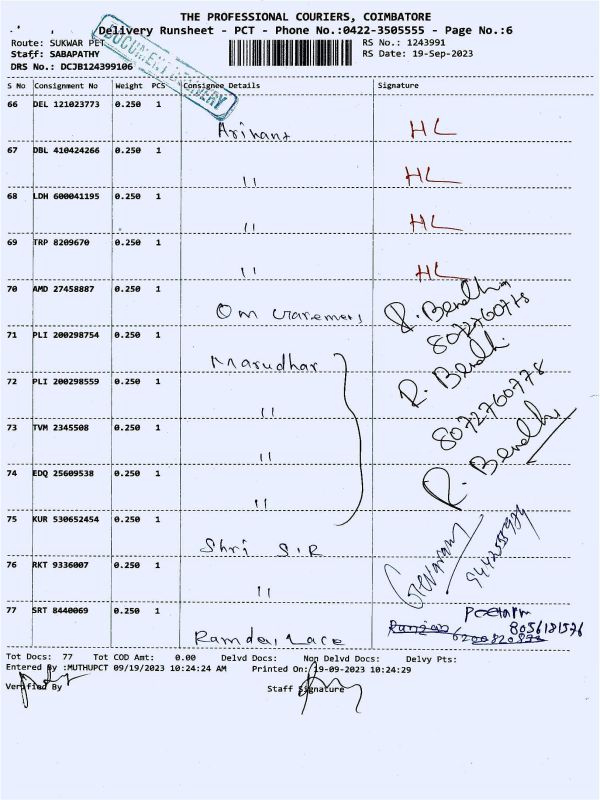 THE PROFESSIONAL COURIERS, COIMBATORE
Delivery Runsheet - PCT - Phone No.:0422-3505555 - Page No.:6
Route: SUKWAR PET
RS No.: 1243991
Staff: SABAPATHY
RS Date: 19-Sep-2023
DRS No.: DCJB124399106
DOCUMENT DELIVERY
S No Consignment No Weight PCS Consignee Details Signature
66 DEL 121023773 0.250 1
Arihant HL
67 DBL 410424266 0.250 1
" HL
68 LDH 600041195 0.250 1
" HL
69 TRP 8209670 0.250 1
" HL
70 AMD 27458887 0.250 1
Om R. Bendhi
8072760778
71 PLI 200298754 0.250 1
Marudhar R. Bendhi
72 PLI 200298559 0.250 1
" 8072760778
73 TVM 2345508 0.250 1
"
74 EDQ 25609538 0.250 1
" R. Bendhi
75 KUR 530652454 0.250 1
Shri S.R
76 RKT 9336007 0.250 1
"
77 SRT 8440069 0.250 1
8056181576
Ramdev Lace
Tot Docs: 77 Tot COD Amt: 0.00 Delvd Docs: Non Delvd Docs: Delvy Pts:
Entered By :MUTHUPCT 09/19/2023 10:24:24 AM Printed On: 19-09-2023 10:24:29
Verified By Staff Signature